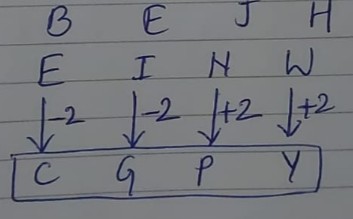 B E J H
E I N W
-2 -2 +2 +2
C G P Y